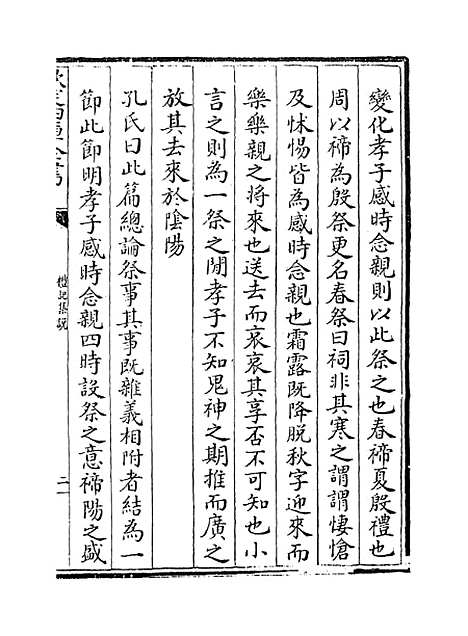 變化孝子感時念親則以此祭之也春禘夏殷禮也
周以禘為殷祭更名春祭曰祠非其寒之謂謂悽愴
及怵惕皆為感時念親也霜露既降脱秋字迎來而
樂樂親之將來也送去而哀哀其享否不可知也小
言之則為一祭之間孝子不知鬼神之期推而廣之
放其去來於陰陽
孔氏曰此篇總論祭事其事既雜義相附者結為一
節此節明孝子感時念親四時設祭之意禘陽之盛
欽定四庫全書
禮記集說
二